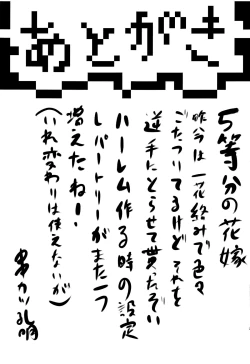 あとがき
5等分の花嫁
昨今は一花絡みで色々
ごたついてるけど それを
逆手にとらせて貰ったぞい
ハーレム作る時の設定
レパートリーがまた一つ
増えたね!
(入れ変わりは使えないが)